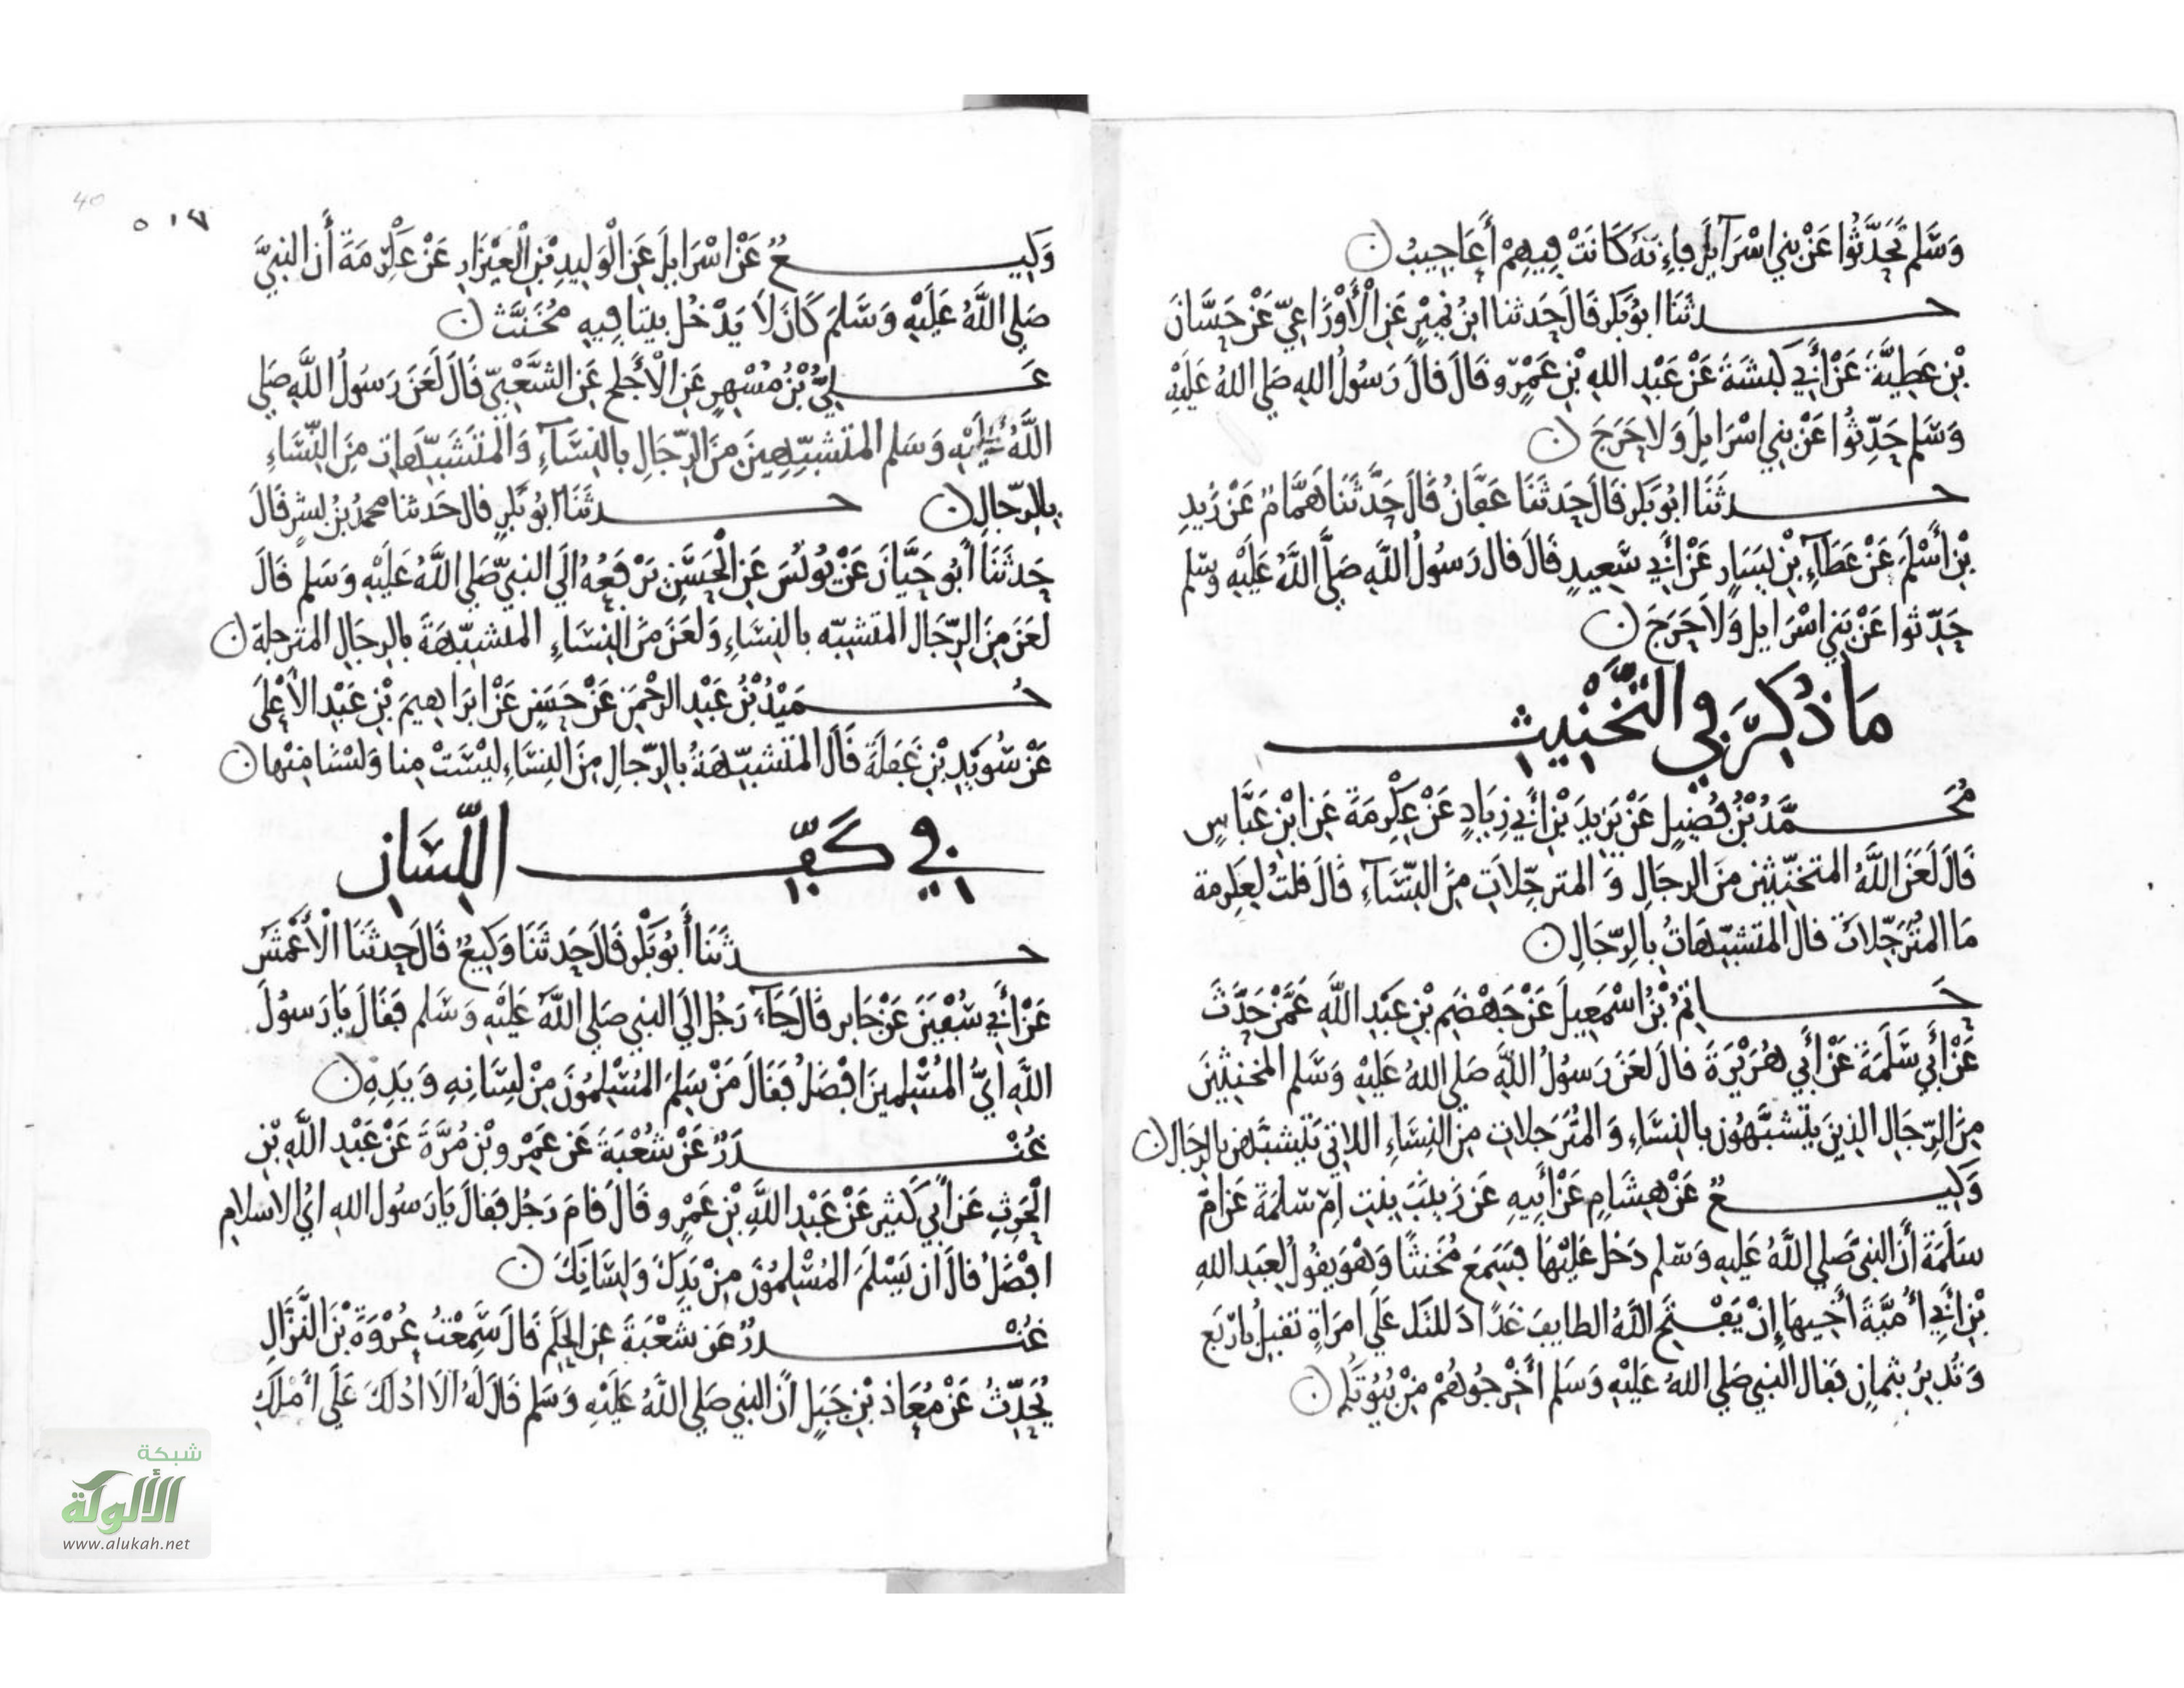 وَسَلَّم تَحَدَّثُوا عَنْ بني اسْرَآيلَ فإنه كَانَتْ فِيهِمْ أَعَاجِيبُ
حدثَنَا ابُو بَكر قَالَ حَدثنا ابنُ نميرٍ عَنِ الْأَوْزَاعِيِّ عَنْ حَسَّانَ
بْنِ عَطِيَّةَ عَنْ أَبي كَبشَةَ عَنْ عَبْدِ اللهِ بْنِ عَمْرٍو قَالَ قالَ رَسُولُ اللهِ صَلي اللهُ عَلَيْهِ
وَسَلم حَدِّثُوا عَنْ بني اسْرَايلَ وَلا حَرَجَ
حدثَنَا ابُو بَكر قَالَ حَدثَنَا عَفَّانُ قَالَ حَدَّثَنَا هَمَّامٌ عَنْ زَيدِ
بْنِ أَسْلَمَ عَنْ عَطَآءِ بْنِ يَسَارٍ عَنْ أَبي سَعِيدٍ قَالَ قال رَسُولُ اللَّهِ صَلَّي اللَّهُ عَلَيْهِ وسلم
حَدِّثوا عَنْ بَني اسْرَايل وَلَا حَرَجَ
مَا ذُكِرَ فِي التَّخْنِيثِ
مُحَمَّدُ بْنُ فُضَيلٍ عَنْ يَزيدَ بْنِ أَبي زِيَادٍ عَنْ عِكْرِمَةَ عَنِ ابْنِ عَبَّاسٍ
قَالَ لَعَنَ اللَّهُ المتخنِّثين منَ الرجَالِ وَ المترجِّلاتِ مِنَ النِّسَآءِ قَالَ قلتُ لِعِكرمة
مَا المُتَرَجِّلَاتُ قالَ المتشبِّهَاتُ بالِرِّجَالِ
حَاتِمُ بْنُ اسْمَعِيلَ عَنْ جَهْضَمِ بْنِ عَبْدِ اللَّهِ عَمَّنْ حَدَّثَ
عَنْ أَبي سَلَمَةَ عَنْ أَبي هُرَيْرَةَ قالَ لعَنَ رَسُولُ اللَّهِ صَلي اللهُ عَلَيْهِ وَسَّلم المخنِثِينَ
مِنَ الرِّجَالِ الذِينَ يَتَشَبَّهُونَ بالنِسَاءِ وَ المُتَرَجلاتِ مِنَ النِسَاءِ اللاتي يَتَشبَّهن بالرجَال
وَكِيعٌ عَنْ هِشَامٍ عَنْ أَبِيهِ عَنْ زَينَبَ بِنتِ امّ سَلمَةَ عَن امّ
سَلَمَةَ أَنَ النبيَّ صَلي اللَّهُ عَليهِ وَسَلم دَخَلَ عَلَيْهَا فسَمِعَ مُخَنثًا وَهْوَ يقُولُ لِعَبدِ اللهِ
بْنِ أَبي أُمَيَّةَ أَخِيهَا إِنْ يَفْتَحِ اللَّهُ الطايفَ غَدًا دَللتُكَ عَلَي امرَأةٍ تقبِلُ بِارْبَعٍ
وَتُدْبِرُ بثمانٍ فقالَ النبي صَلي اللهُ عَلَيْهِ وَسَلم أَخْرِجُوهُمْ مِنْ بُيُوتكم
40
٥١٧
وَكِيعٌ عَنْ اسْرَايلَ عَنِ الْوَلِيدِ بْنِ الْعَيْزَارِ عَنْ عِكْرِمَةَ أَن النبيَّ
صَلي اللَّهُ عَلَيْهِ وَسَّلمَ كَانَ لَا يَدْخُل بيتا فِيهِ مُخَنَّث
عَلِيُّ بْنُ مُسْهِرٍ عَنِ الْأَجْلَحِ عَنِ الشَّعْبِيِّ قَالَ لَعَنَ رَسُولُ اللَّهِ صَلي
اللَّهُ عَلَيْهِ وَسَلم المتَشَبِّهِينَ مِنَ الرِّجَالِ بالنِسَآءِ وَالمتَشَبِّهَاتِ مِنَ النِّسَاءِ
بالرِّجالِ حدثَنَا ابُو بَكرٍ قال حَدثنا محمدُ بْنُ بِشْرٍ قَالَ
حَدثَنَا أَبُو حَيَّانَ عَنْ يُونُسَ عَنِ الْحَسَنِ يَرْفعُهُ الَي النبيّ صَلي اللَّهُ عَلَيْهِ وَسَلم قَالَ
لعَنَ مِنَ الرِّجَال المتشبِّه بالنِسَاءِ وَلعَنَ مِنَ النِسَاءِ المتشبِّهَةَ بالرجَالِ المترجلة
حُمَيْدُ بْنُ عَبْدِ الرحْمَنِ عَنْ حَسَنٍ عَنْ ابرَاهِيمَ بْنِ عَبْدِ الأعْلَى
عَنْ سُوَيْدِ بْنِ غَفَلَةَ قَالَ المتشبِّهَةُ بالرِّجالِ مِنَ النِسَاءِ ليْسَتْ مِنا وَلسْنَا مِنْها
فِي كَفِّ اللِّسَانِ
حدثَنَا أَبُو بَكْر قَالَ حَدثَنَا وَكِيعٌ قَالَ حَدثَنَا الْأَعْمَش
عَنْ أَبي سُفْيَنَ عَنْ جَابر قَالَ جَآءَ رَجُلٌ الَي النبي صَلي اللَّهُ عَلَيْهِ وَسَلم فَقَالَ يَا رَسولَ
اللَّهِ ايُّ المُسْلِمينَ افْضَلُ فَقَالَ مَنْ سَلِمَ المُسْلِمُونَ مِنْ لِسَانِهِ وَ يَدِهِ
غُنْدَرٌ عَنْ شُعْبَةَ عَن عَمْرِو بْنِ مُرَّةَ عَنْ عَبْدِ اللَّهِ بْنِ
الْحَرِثِ عَن أَبي كَثيرٍ عَنْ عَبْدِ اللَّهِ بْنِ عَمْرٍو قَالَ قامَ رَجُل فَقالَ يَا رَسُولَ اللهِ ايُّ الاسْلامِ
افْضَلُ قالَ ان يَسْلَمَ المُسْلِمُونَ مِنْ يَدِكَ وَلِسَانِكَ
غُنْدرٌ عَن شُعْبَةَ عَنِ الحَكَمِ قَالَ سَمِعْتُ عُرْوَةَ بْنَ النَّزَّالِ
يُحَدِّثُ عَنْ مُعَاذ بْنِ جَبَلٍ أَن النبي صَلي اللَّهُ عَلَيْهِ وَسَلم قَالَ لَهُ الَا ادُلكَ عَلَي أَمْلَكِ
شبكة
الألوكة
www.alukah.net